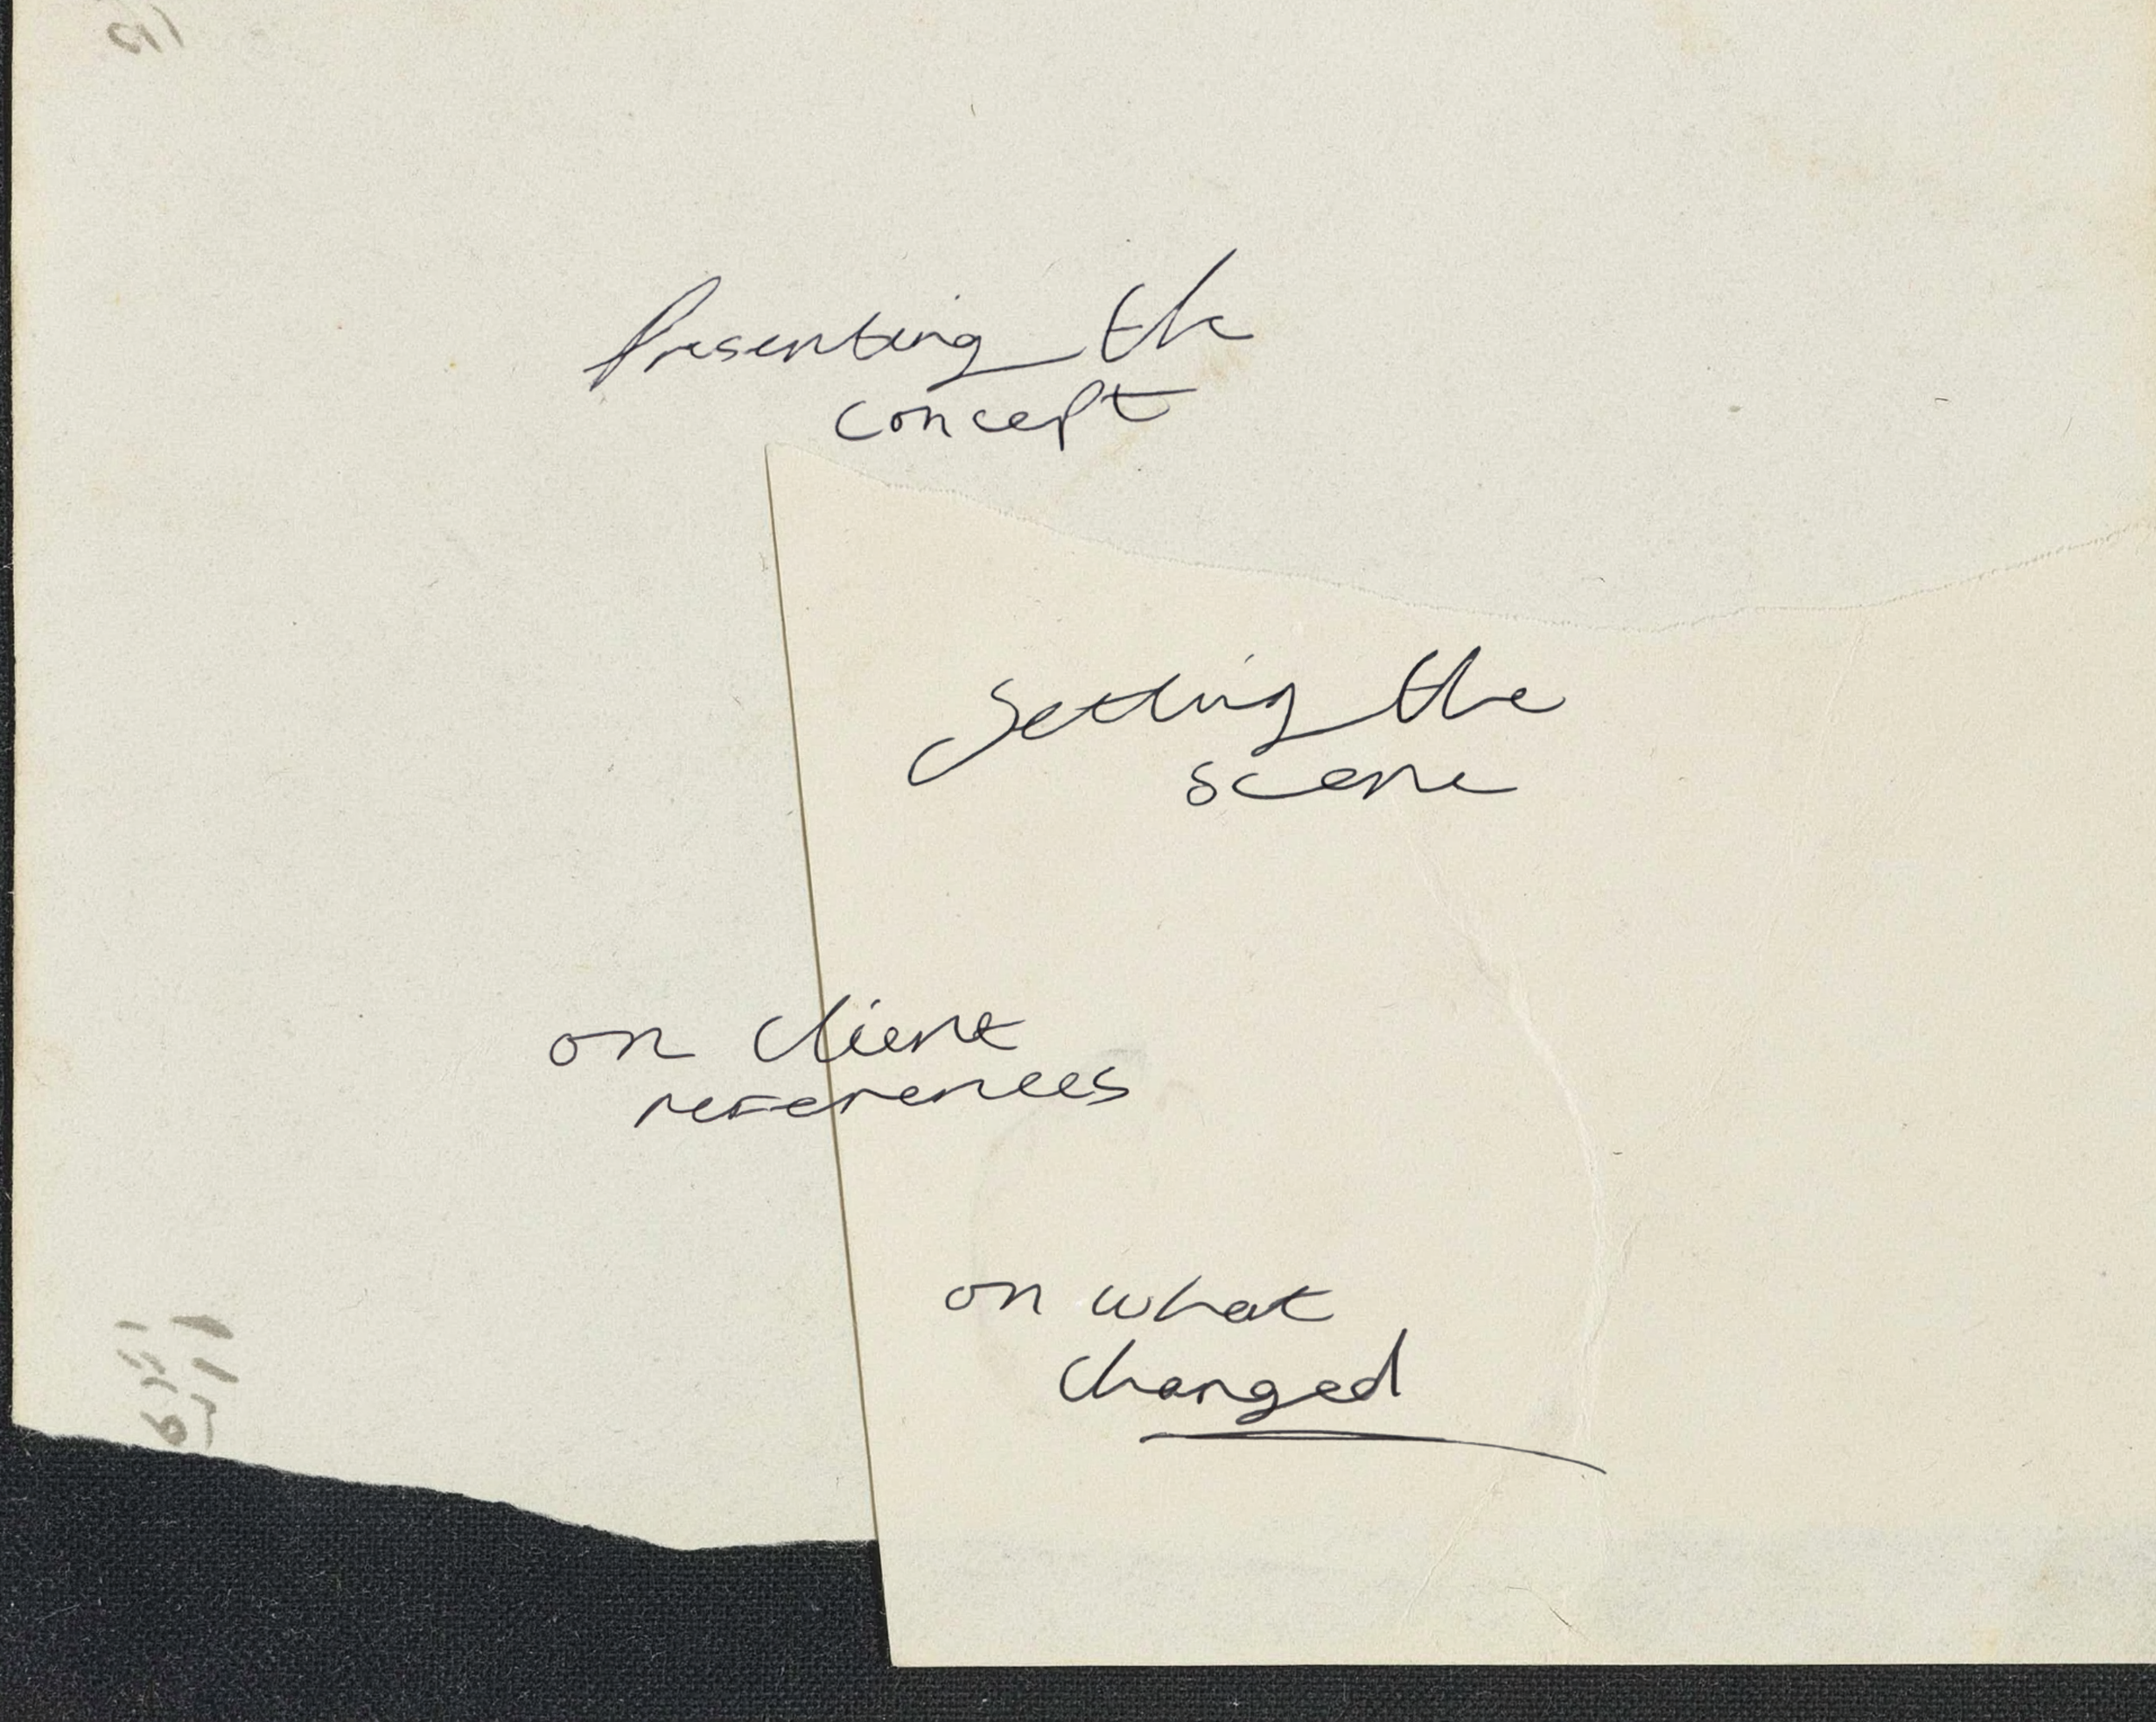 Presenting the
concept
Setting the
scene
on client
references
on what
changed